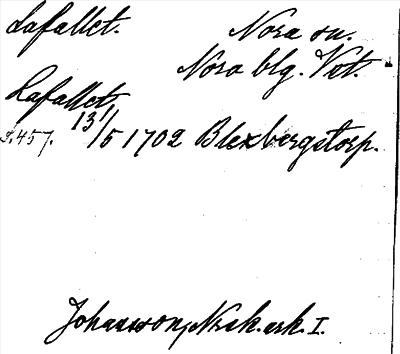 Lafallet. Nora sn.
Nora blg. Vst.
Lafallet
s.457. 13/5 1702 Blexbergstorp.
Johansson, Norak. ark. I.